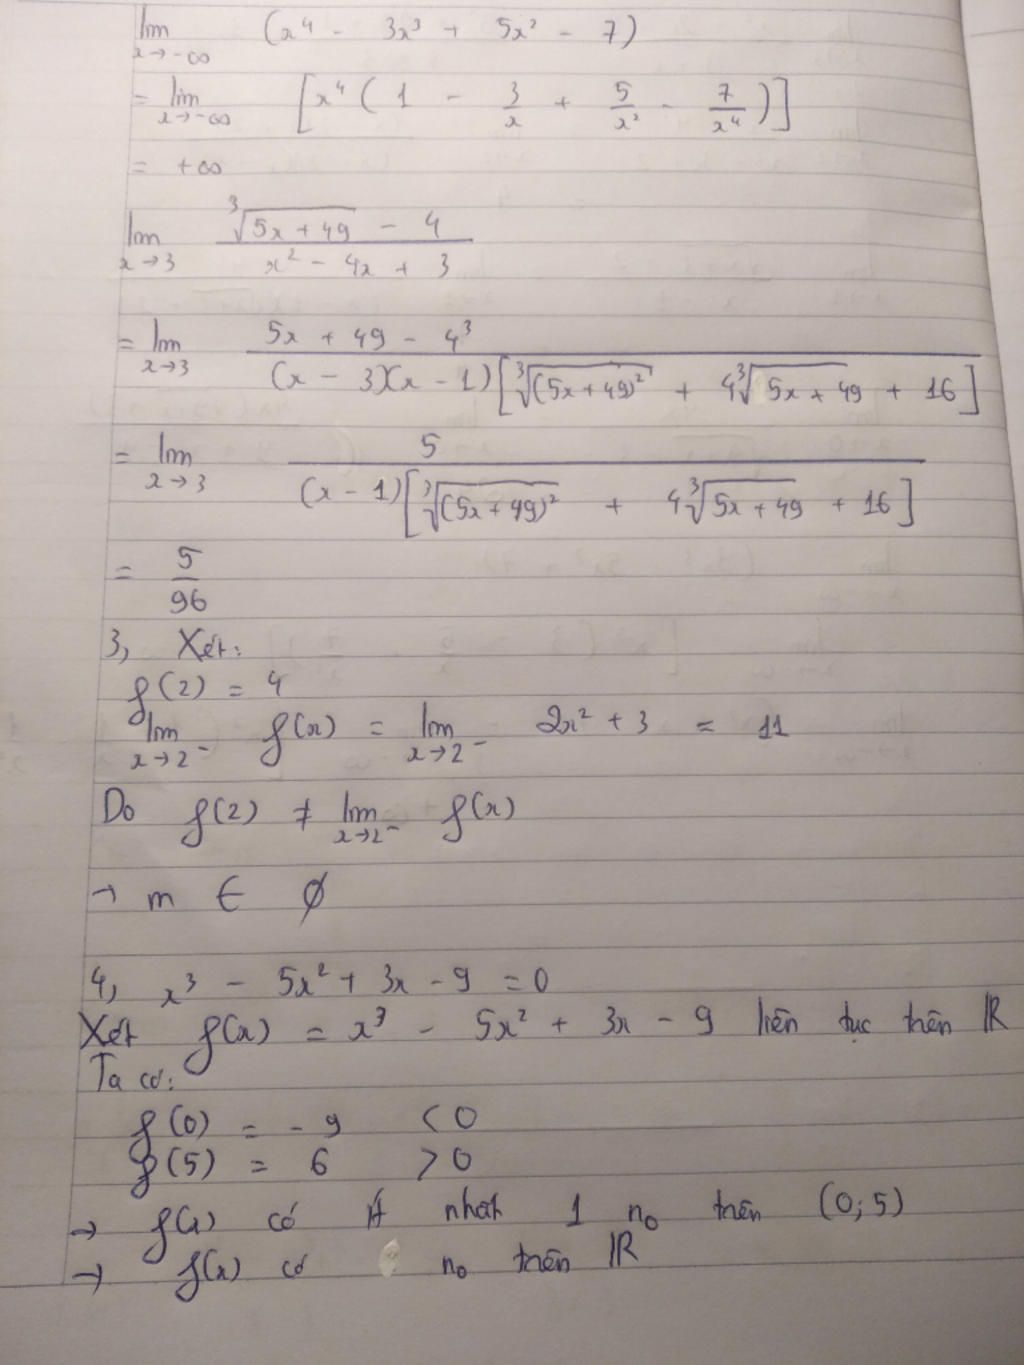 lim x→-∞ (x⁴ - 3x³ + 5x² - 7)
= lim x→-∞ [x⁴ (1 - 3/x + 5/x² - 7/x⁴)]
= +∞
lim x→3 (∛(5x + 49) - 4)/(x² - 4x + 3)
= lim x→3 (5x + 49 - 4³)/((x - 3)(x - 1)[∛(5x + 49)² + 4∛(5x + 49) + 16])
= lim x→3 5/((x - 1)[∛(5x + 49)² + 4∛(5x + 49) + 16])
= 5/96
3, Xét:
f(2) = 4
lim x→2⁻ f(x) = lim x→2⁻ 2x² + 3 = 11
Do f(2) ≠ lim x→2⁻ f(x)
→ m ∈ ∅
4, x³ - 5x² + 3x - 9 = 0
Xét f(x) = x³ - 5x² + 3x - 9 liên tục trên ℝ
Ta có:
f(0) = -9 < 0
f(5) = 6 > 0
→ f(x) có ít nhất 1 n₀ trên (0; 5)
→ f(x) có n₀ trên ℝ